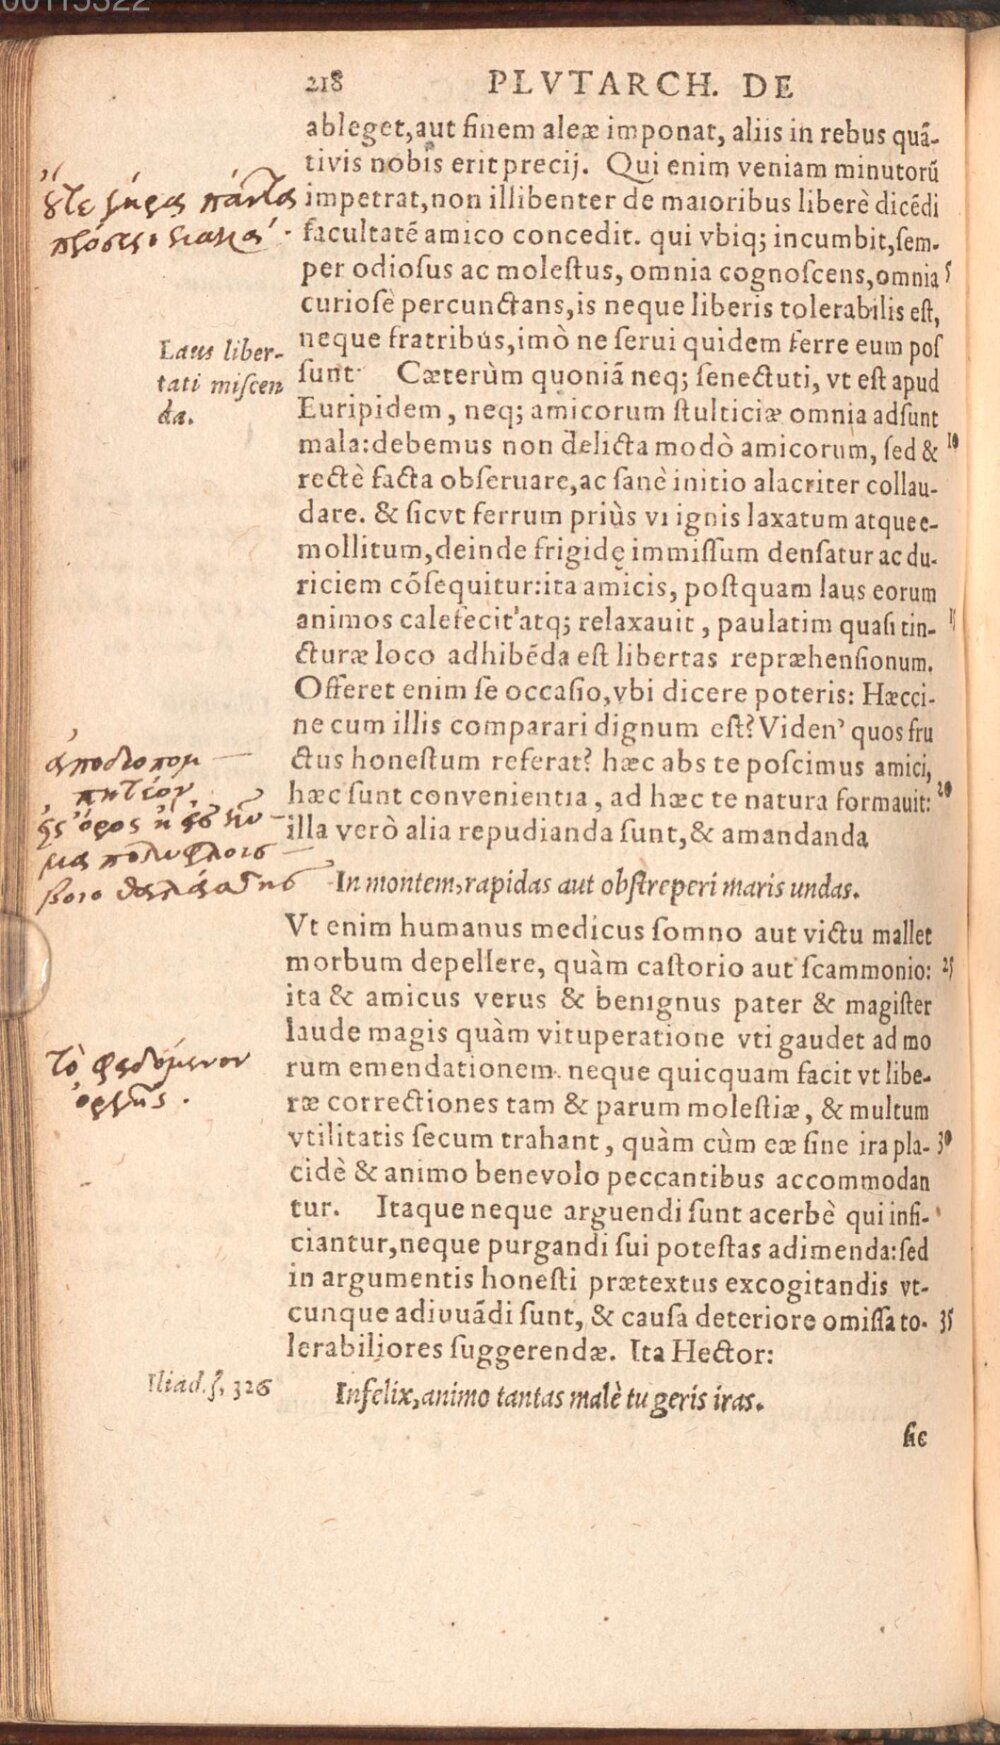 00115322
218 PLVTARCH. DE
ableget,aut finem aleæ imponat, aliis in rebus quã-
tivis nobis erit precij. Qui enim veniam minutorũ
impetrat,non illibenter de maioribus liberè dicẽdi
facultatẽ amico concedit. qui vbiq; incumbit,ſem-
per odioſus ac moleſtus, omnia cognoſcens,omnia 5
curioſè percunctans,is neque liberis tolerabilis eſt,
neque fratribus,imò ne ſerui quidem ferre eum poſ
ſunt Cæterùm quoniã neq; ſenectuti, vt eſt apud
Euripidem, neq; amicorum ſtulticiæ omnia adſunt
mala:debemus non delicta modò amicorum, ſed & 10
rectè facta obſeruare,ac ſanè initio alacriter collau-
dare. & ſicvt ferrum priùs vi ignis laxatum atque e-
mollitum,deinde frigidę immiſſum denſatur ac du-
riciem cõſequitur:ita amicis, poſtquam laus eorum
animos calefecit atq; relaxauit, paulatim quaſi tin- 15
cturæ loco adhibẽda eſt libertas repræhenſionum.
Offeret enim ſe occaſio,vbi dicere poteris: Hæcci-
ne cum illis comparari dignum eſt? Viden' quos fru
ctus honeſtum referat? hæc abs te poſcimus amici,
hæc ſunt convenientia, ad hæc te natura formauit: 20
illa verò alia repudianda ſunt,& amandanda
In montem,rapidas aut obſtreperi maris undas.
Vt enim humanus medicus ſomno aut victu mallet
morbum depellere, quàm caſtorio aut ſcammonio: 25
ita & amicus verus & benignus pater & magiſter
laude magis quàm vituperatione vti gaudet ad mo
rum emendationem. neque quicquam facit vt libe-
ræ correctiones tam & parum moleſtiæ, & multum
vtilitatis ſecum trahant, quàm cùm eæ ſine ira pla- 30
cidè & animo benevolo peccantibus accommodan
tur. Itaque neque arguendi ſunt acerbè qui infi-
ciantur,neque purgandi ſui poteſtas adimenda:ſed
in argumentis honeſti prætextus excogitandis vt-
cunque adiuuãdi ſunt, & cauſa deteriore omiſſa to- 35
lerabiliores ſuggerendæ. Ita Hector:
Infelix,animo tantas malè tu geris iras.
ſic
ὄτε γῆρας πάντα
πρόσεστι κακά.
Laus liber-
tati miſcen
da.
ἀποδιοπομ
πητέον
εἰς ὄρος ἢ ἐς κῦ-
μα πολυφλοισ
βοιο θαλάσσης
τὸ φειδόμενον
ὀργῆς.
Iliad. ζ, 326